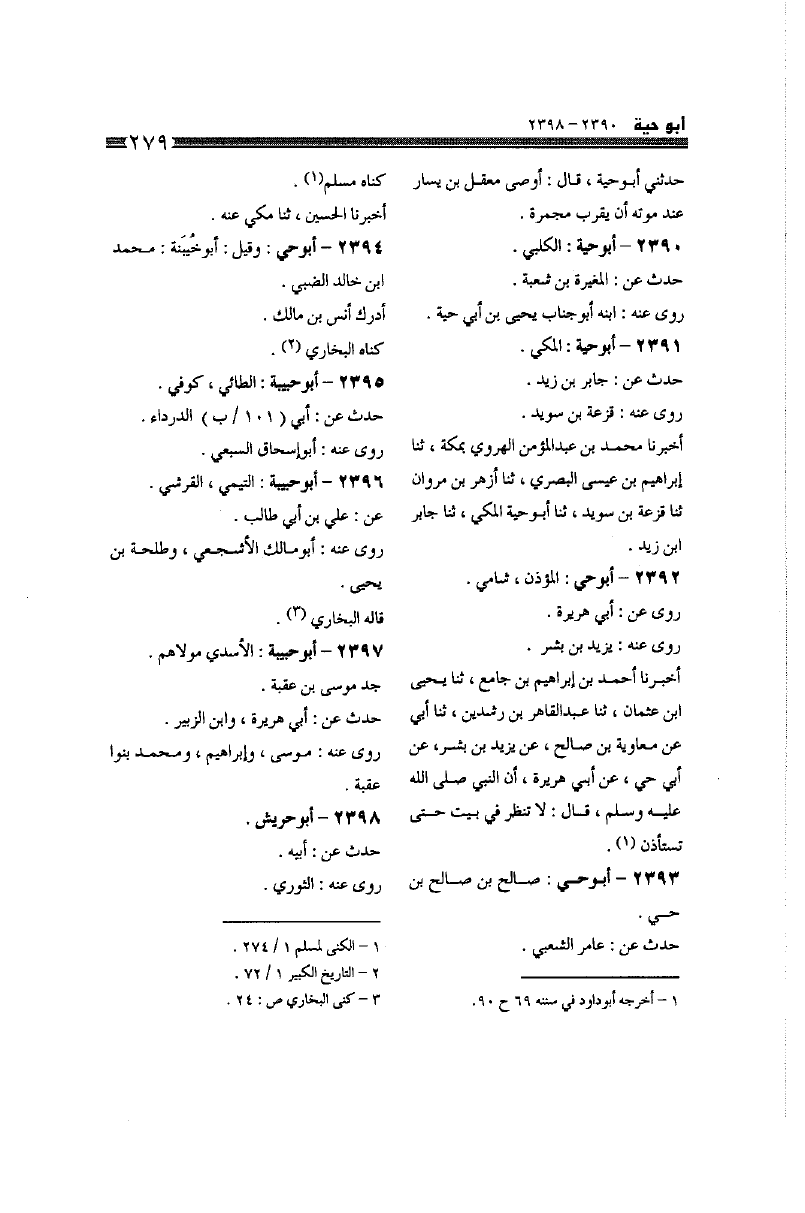 أبو حية ٢٣٩٠ - ٢٣٩٨
٢٧٩
حدثني أبوحية ، قال : أوصى معقل بن يسار
عند موته أن يقرب مجمرة .
٢٣٩٠ - أبوحية : الكلبي .
حدث عن : المغيرة بن شعبة .
روى عنه : ابنه أبوجناب يحيى بن أبي حية .
٢٣٩١ - أبوحية : المكي .
حدث عن : جابر بن زيد .
روى عنه : قزعة بن سويد .
أخبرنا محمد بن عبدالمؤمن الهروي بمكة ، ثنا
إبراهيم بن عيسى البصري ، ثنا أزهر بن مروان
ثنا قزعة بن سويد ، ثنا أبوحية المكي ، ثنا جابر
ابن زيد .
٢٣٩٢ - أبوحي : المؤذن ، شامي .
روى عن : أبي هريرة .
روى عنه : يزيد بن بشر .
أخبرنا أحمد بن إبراهيم بن جامع ، ثنا يحيى
ابن عثمان ، ثنا عبدالقاهر بن رشدين ، ثنا أبي
عن معاوية بن صالح ، عن يزيد بن بشر، عن
أبي حي ، عن أبي هريرة ، أن النبي صلى الله
عليه وسلم ، قال : لا تنظر في بيت حتى
تستأذن (١) .
٢٣٩٣ - أبوحي : صالح بن صالح بن
حي .
حدث عن : عامر الشعبي .
١ - أخرجه أبوداود في سننه ٦٩ ح ٩٠.
كناه مسلم(١) .
أخبرنا الحسين ، ثنا مكي عنه .
٢٣٩٤ - أبوحي : وقيل : أبوخُبيَنة : محمد
ابن خالد الضبي .
أدرك أنس بن مالك .
كناه البخاري (٢) .
٢٣٩٥ - أبوحبيبة : الطائي ، كوفي .
حدث عن : أبي ( ١٠١ / ب ) الدرداء .
روى عنه : أبوإسحاق السبعي .
٢٣٩٦ - أبوحبيبة : التيمي ، القرشي .
عن : علي بن أبي طالب .
روى عنه : أبومالك الأشجعي ، وطلحة بن
يحيى .
قاله البخاري (٣) .
٢٣٩٧ - أبوحبيبة : الأسدي مولاهم .
جد موسى بن عقبة .
حدث عن : أبي هريرة ، وابن الزبير .
روى عنه : موسى ، وإبراهيم ، ومحمد بنوا
عقبة .
٢٣٩٨ - أبوحريش .
حدث عن : أبيه .
روى عنه : الثوري .
١ - الكنى لمسلم ١ / ٢٧٤ .
٢ - التاريخ الكبير ١ / ٧٢ .
٣ - كنى البخاري ص : ٢٤ .